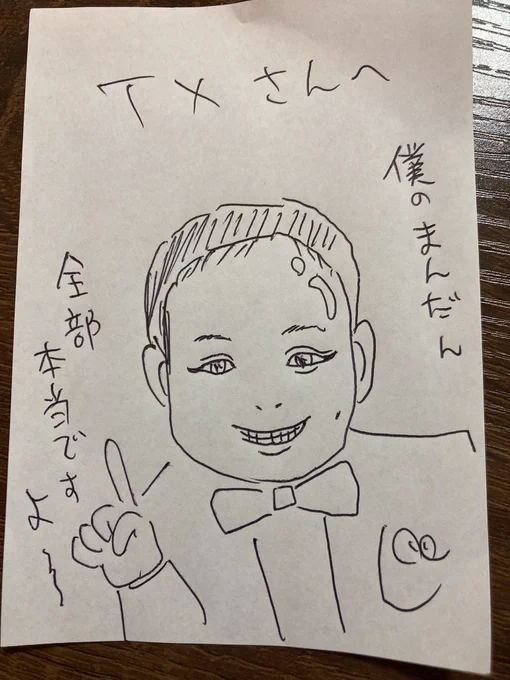 TMさんへ
僕のまんだん
全部
本当です
よ〜